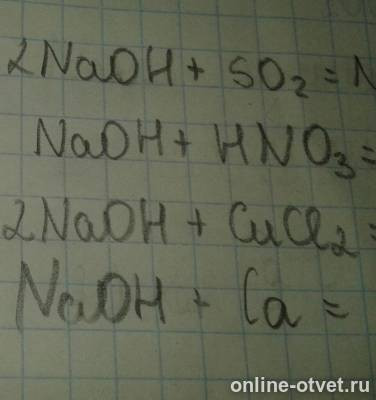 2NaOH + SO₂ = N
NaOH + HNO₃ =
2NaOH + CuCl₂ =
NaOH + Ca =
online-otvet.ru